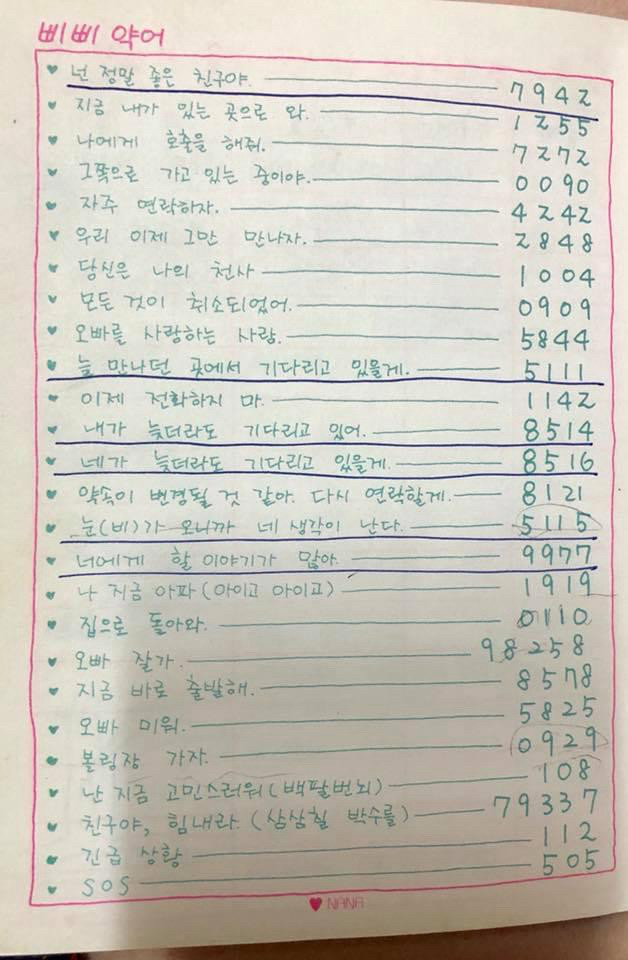 삐삐 약어
♥ 넌 정말 좋은 친구야. 7942
♥ 지금 내가 있는 곳으로 와. 1255
♥ 나에게 호출을 해줘. 7272
♥ 그쪽으로 가고 있는 중이야. 0090
♥ 자주 연락하자. 4242
♥ 우리 이제 그만 만나자. 2848
♥ 당신은 나의 천사 1004
♥ 모든 것이 취소되었어. 0909
♥ 오빠를 사랑하는 사람. 5844
♥ 늘 만나던 곳에서 기다리고 있을게. 5111
♥ 이제 전화하지 마. 1142
♥ 내가 늦더라도 기다리고 있어. 8514
♥ 네가 늦더라도 기다리고 있을게. 8516
♥ 약속이 변경될 것 같아. 다시 연락할게. 8121
♥ 눈(비)가 오니까 네 생각이 난다. 5115
♥ 너에게 할 이야기가 많아. 9977
♥ 나 지금 아파(아이고 아이고) 1919
♥ 집으로 돌아와. 0110
♥ 오빠 잘가. 98258
♥ 지금 바로 출발해. 8578
♥ 오빠 미워. 5825
♥ 볼링장 가자. 0929
♥ 난 지금 고민스러워(백팔번뇌) 108
♥ 친구야, 힘내라. (삼삼칠 박수를) 79337
♥ 긴급 상황 112
♥ SOS 505
♥ NANA